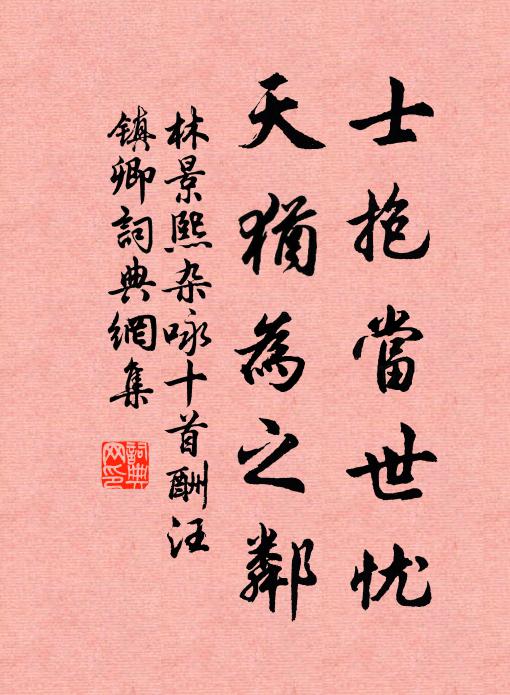 士抱當世忧
天猶為之鄰
林景熙杂咏十首酬汪
镇卿詞典網集
詞典网印